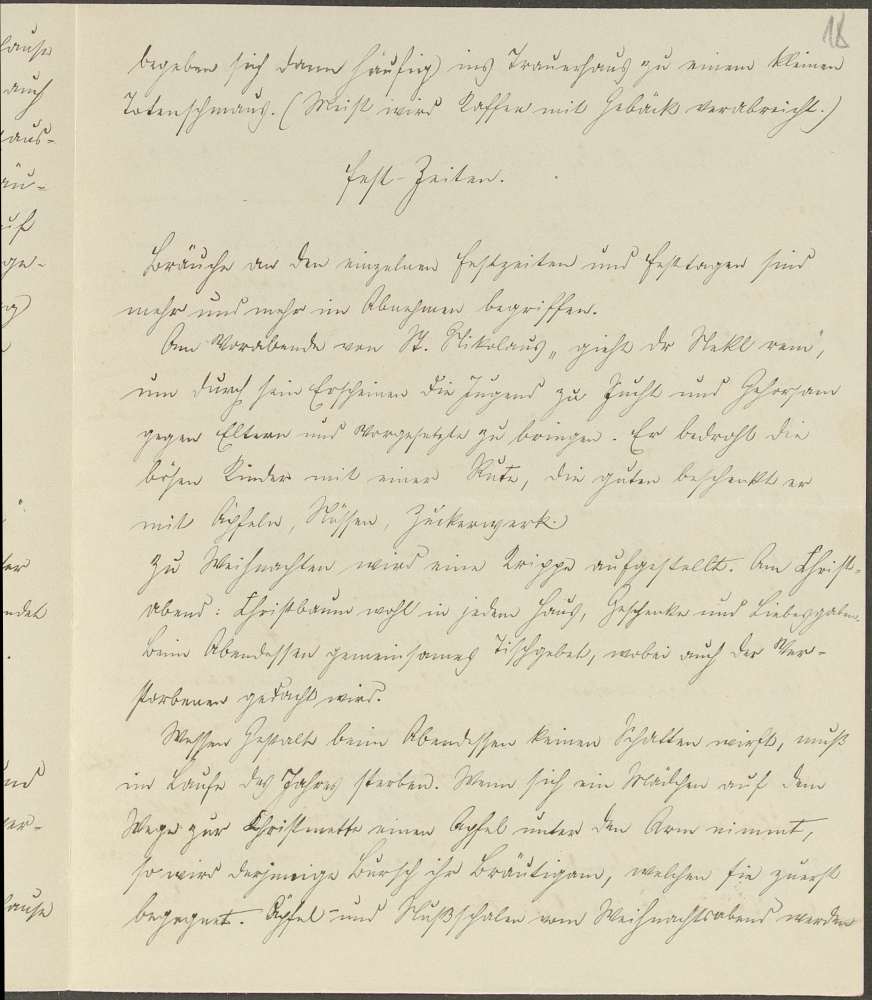 18
begeben sich dann häufig ins Trauerhaus zu einem kleinen
Totenschmaus. (Meist wird Kaffee mit Gebäck verabreicht.)
Fest-Zeiten.
Bräuche an den einzelnen Festzeiten und Festtagen sind
mehr und mehr im Abnehmen begriffen.
Am Vorabende von St. Nikolaus „zieht dr Nekl rem",
um durch sein Erscheinen die Jugend zu Zucht und Gehorsam
gegen Eltern und Vorgesetzte zu bringen. Er bedroht die
bösen Kinder mit einer Rute, die guten beschenkt er
mit Äpfeln, Nüssen, Zuckerwerk.
Zu Weihnachten wird eine Krippe aufgestellt. Am Christ-
abend: Christbaum wohl in jedem Haus, Geschenke und Liebesgaben.
Beim Abendessen gemeinsames Tischgebet, wobei auch der Ver-
storbenen gedacht wird.
Wessen Gestalt beim Abendessen keinen Schatten wirft, muß
im Laufe des Jahres sterben. Wenn sich ein Mädchen auf dem
Wege zur Christmette einen Apfel unter den Arm nimmt,
so wird derjenige Bursch ihr Bräutigam, welchen sie zuerst
begegnet. Äpfel- und Nußschalen vom Weihnachtsabend werden